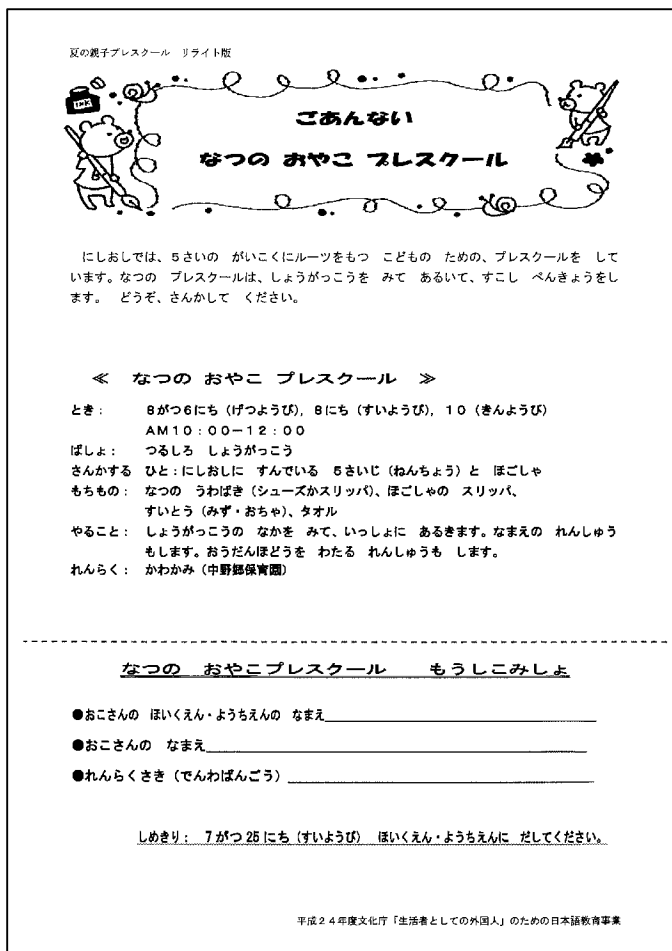 夏の親子プレスクール リライト版
INK
ごあんない
なつの おやこ プレスクール
にしおしでは、5さいの がいこくにルーツをもつ こどもの ための、プレスクールを して
います。なつの プレスクールは、しょうがっこうを みて あるいて、すこし べんきょうをし
ます。 どうぞ、さんかして ください。
≪ なつの おやこ プレスクール ≫
とき： 8がつ6にち（げつようび），8にち（すいようび），10（きんようび）
AM10：00－12：00
ばしょ： つるしろ しょうがっこう
さんかする ひと：にしおしに すんでいる 5さいじ（ねんちょう）と ほごしゃ
もちもの： なつの うわばき（シューズかスリッパ）、ほごしゃの スリッパ、
すいとう（みず・おちゃ）、タオル
やること： しょうがっこうの なかを みて、いっしょに あるきます。なまえの れんしゅう
もします。おうだんほどうを わたる れんしゅうも します。
れんらく： かわかみ（中野郷保育園）
なつの おやこプレスクール もうしこみしょ
●おこさんの ほいくえん・ようちえんの なまえ
●おこさんの なまえ
●れんらくさき（でんわばんごう）
しめきり： 7がつ25にち（すいようび） ほいくえん・ようちえんに だしてください。
平成24年度文化庁「生活者としての外国人」のための日本語教育事業